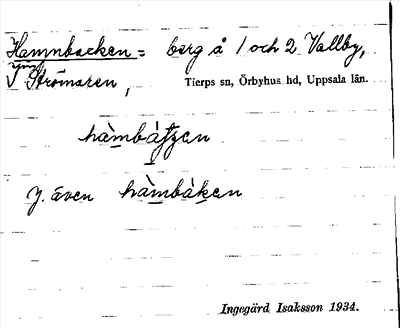 Hamnbacken = berg å 1 och 2 Vallby,
Strömaren, Tierps sn, Örbyhus hd, Uppsala län.
hàmbàʈʂen
J. även hàmbàken
Ingegärd Isaksson 1934.